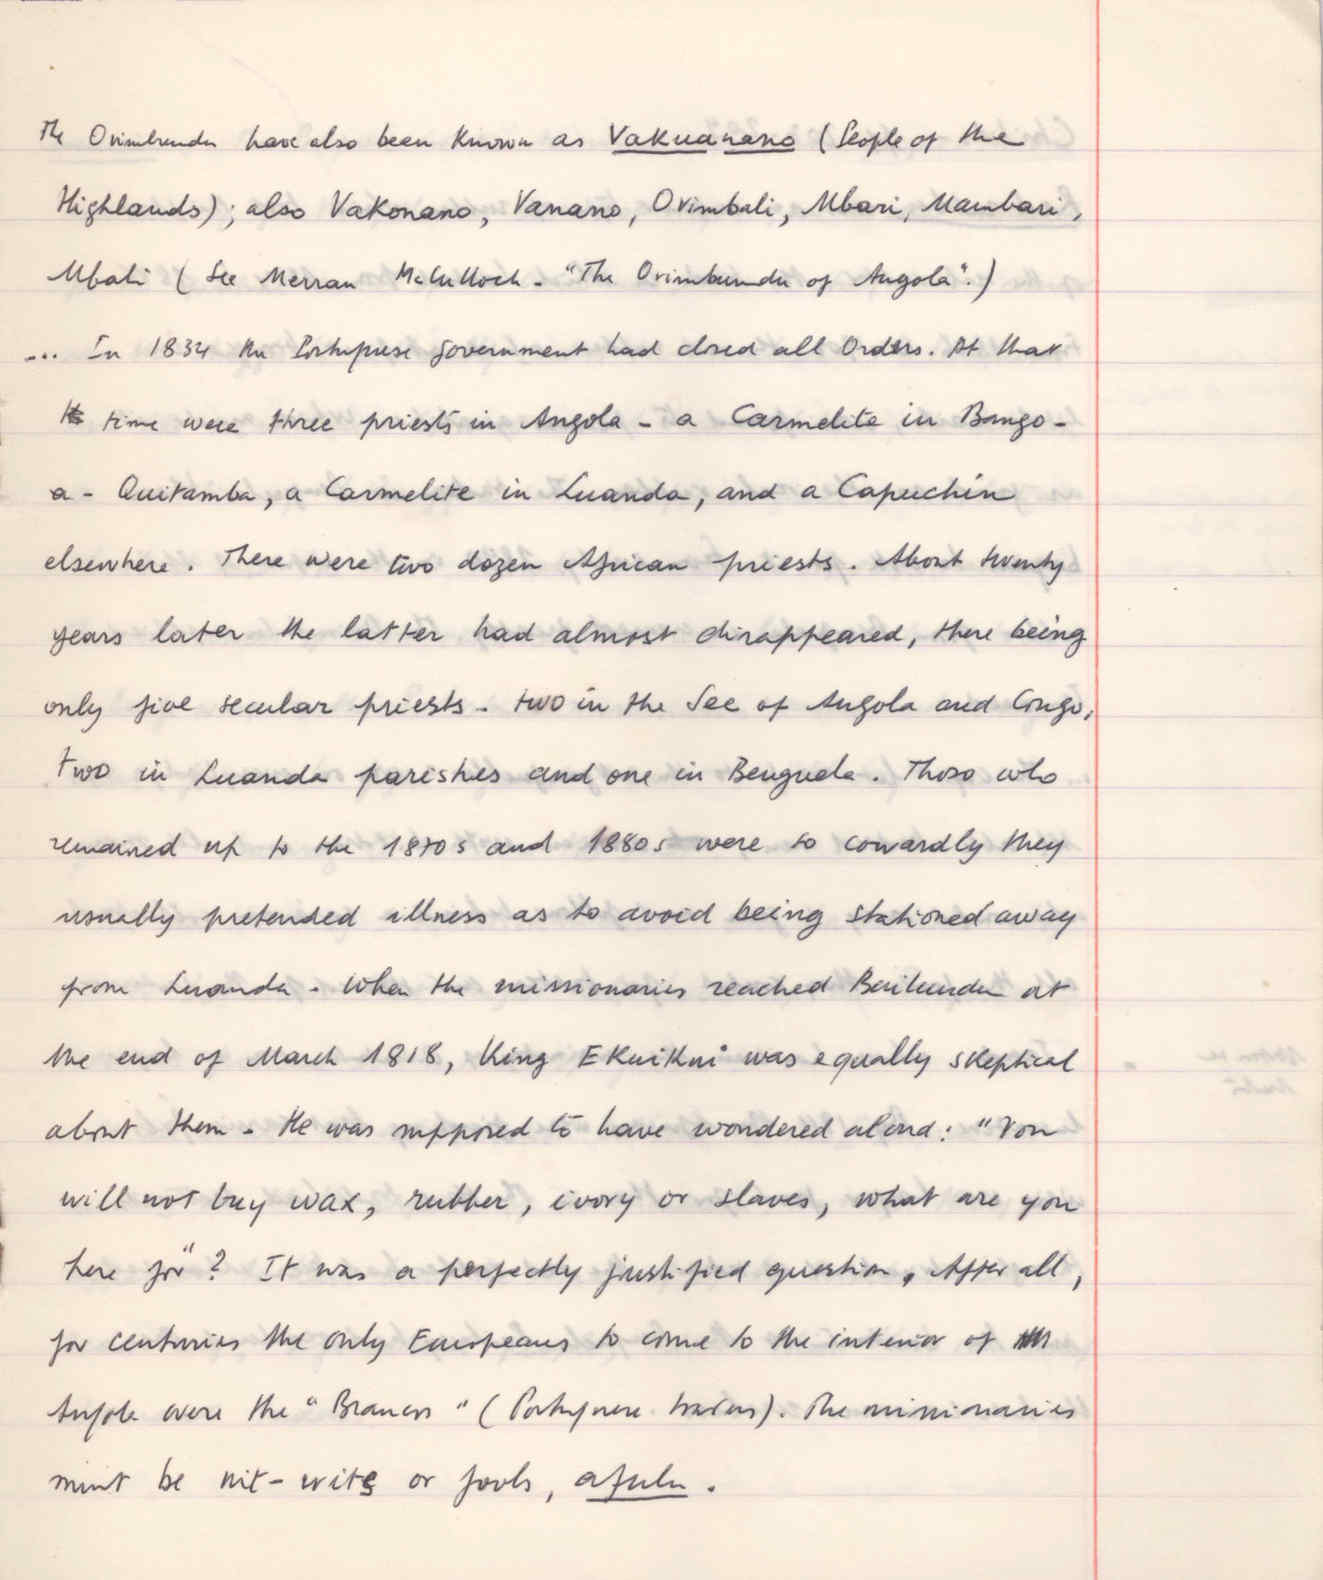 The Ovimbundu have also been known as Vakuanano (People of the
Highlands); also Vakonano, Vanano, Ovimbali, Mbari, Mambari,
Mbali (See Merran McCulloch - "The Ovimbundu of Angola".)
... In 1834 the Portuguese government had closed all Orders. At that
time were three priests in Angola - a Carmelite in Bango-
a- Quitamba, a Carmelite in Luanda, and a Capuchin
elsewhere. There were two dozen African priests. About twenty
years later the latter had almost disappeared, there being
only five secular priests - two in the See of Angola and Congo,
two in Luanda parishes and one in Benguela. Those who
remained up to the 1870s and 1880s were so cowardly they
usually pretended illness as to avoid being stationed away
from Luanda. When the missionaries reached Bailundu at
the end of March 1818, King Ekuikui was equally skeptical
about them. He was supposed to have wondered aloud: "You
will not buy wax, rubber, ivory or slaves, what are you
here for"? It was a perfectly justified question. After all,
for centuries the only Europeans to come to the interior of
Angola were the "Brancos" (Portuguese traders). The missionaries
must be nit-wits or fools, afulu.